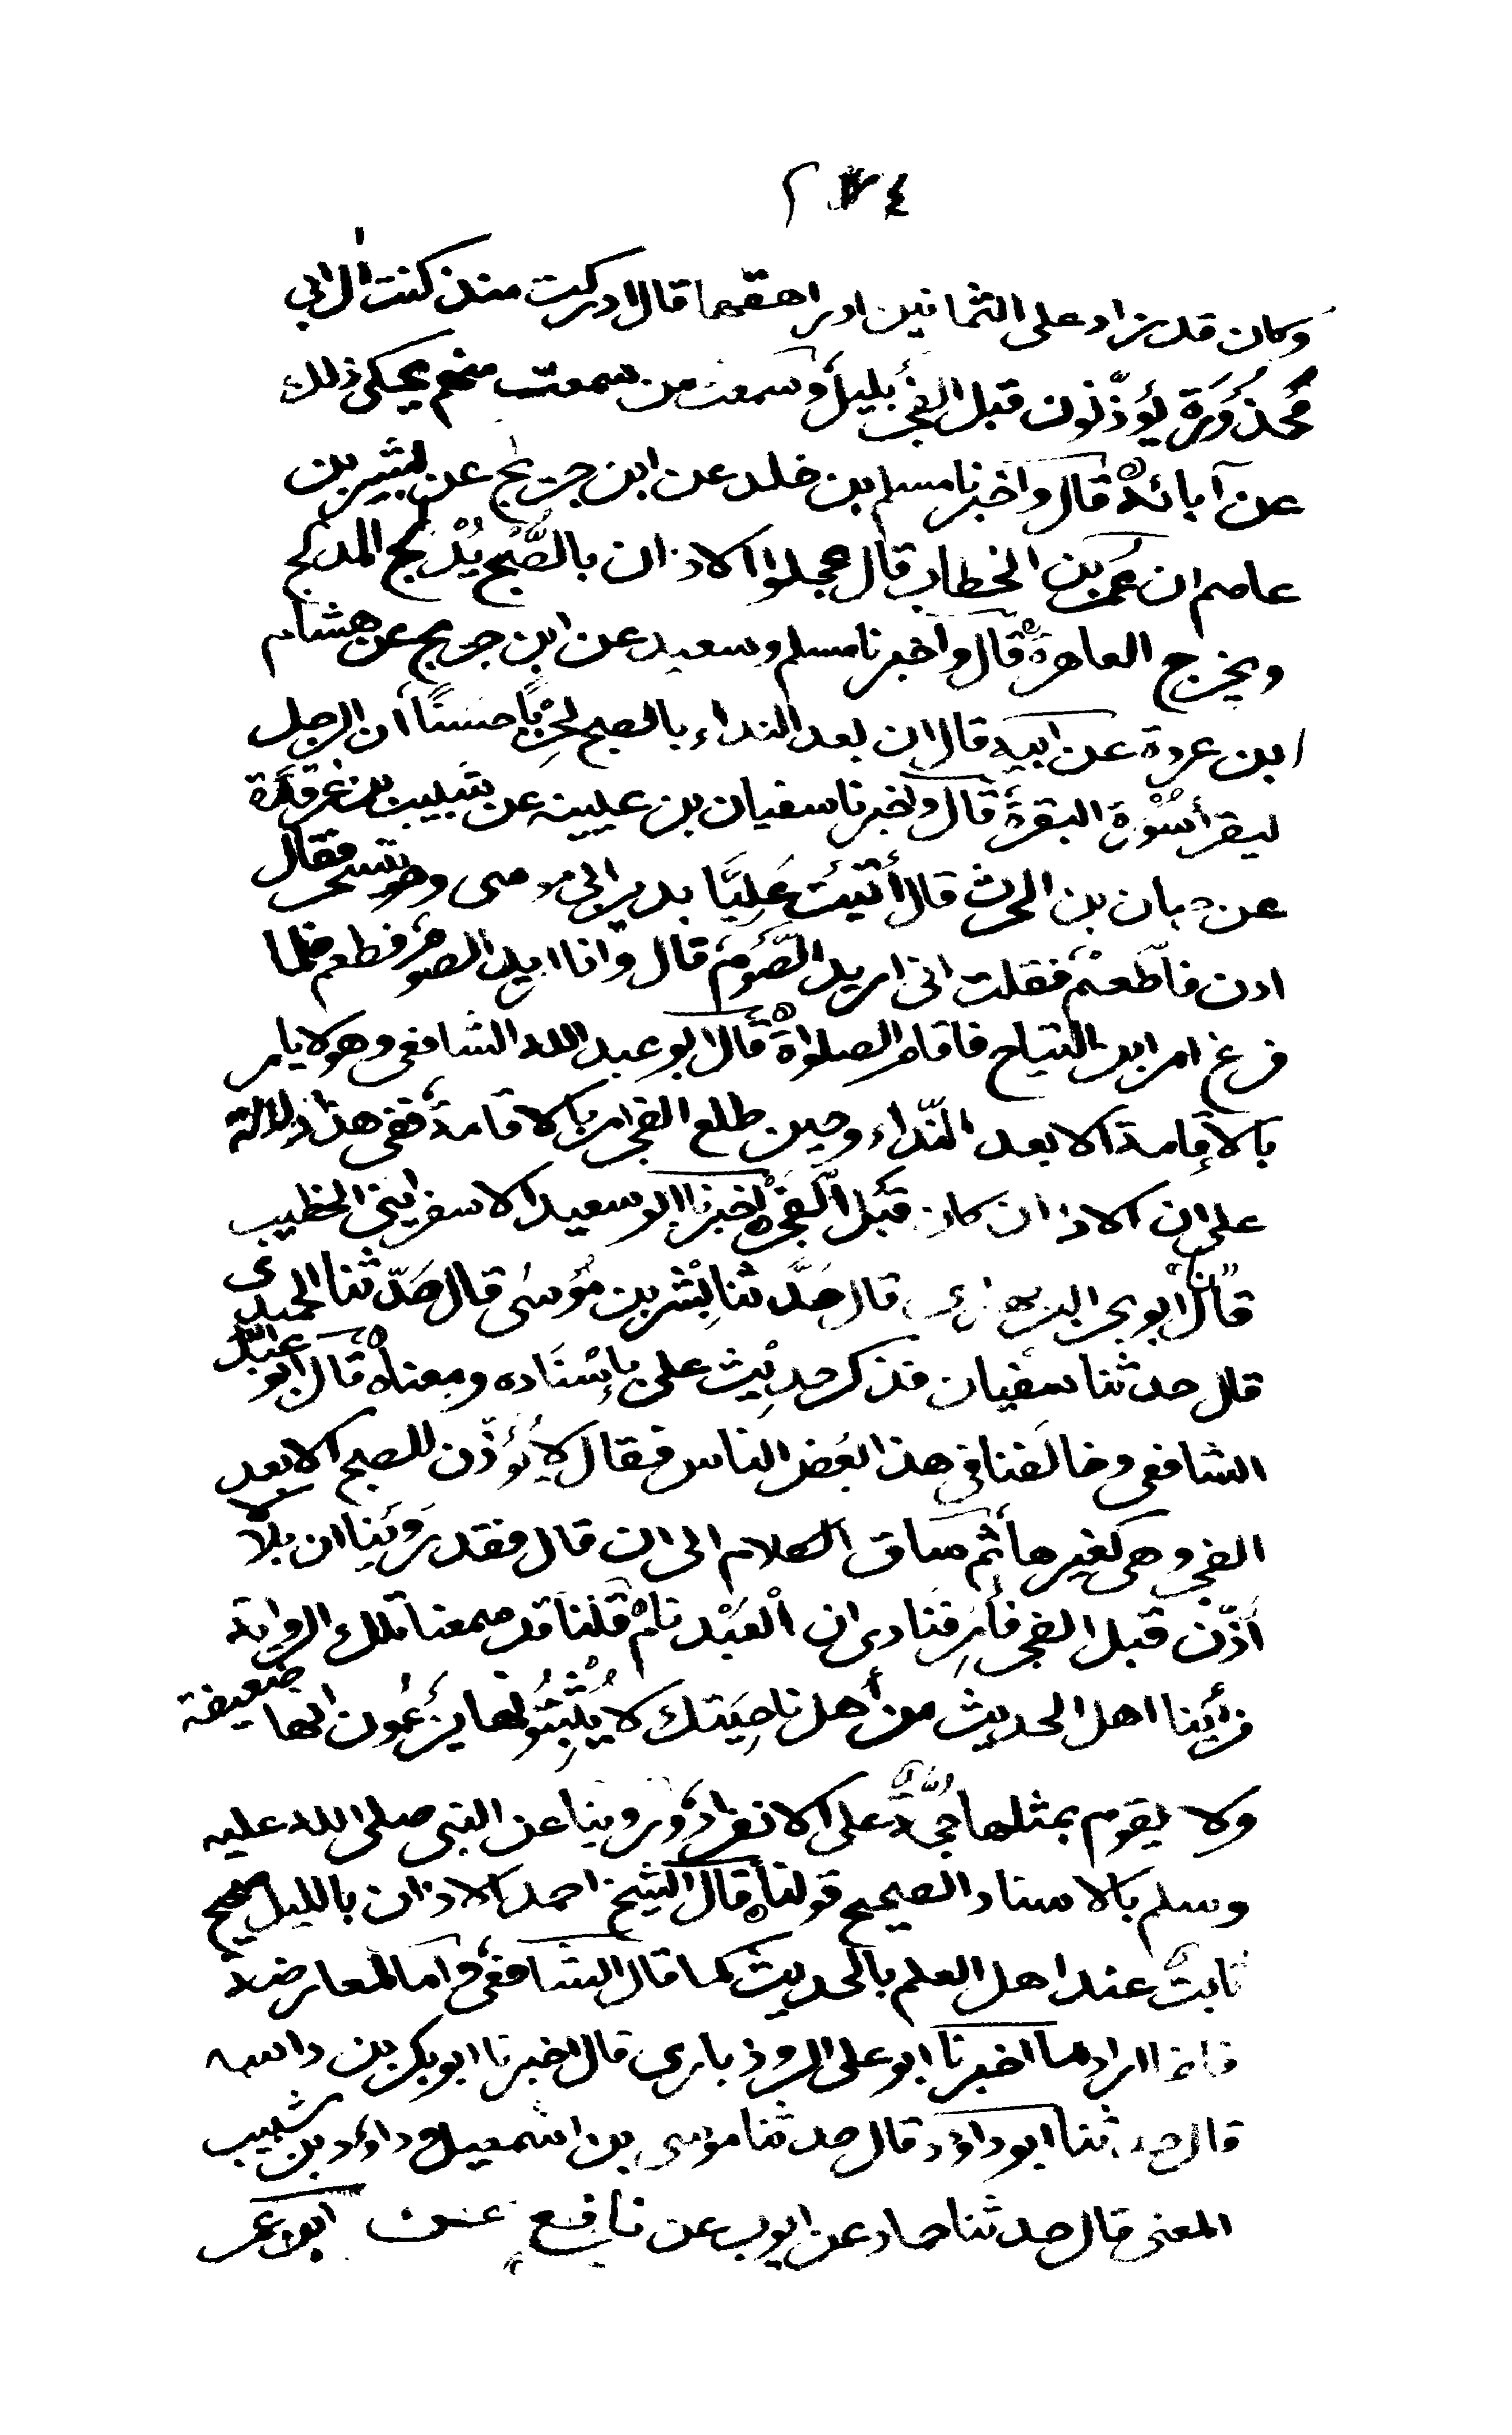 ٢٧٤
وكان قد زاد على الثمانين او راهقها قال ادركت منذ كنت ال ابي
محذورة يؤذّنون قبل الفجر بليل وسمعت من سمعت منهم يحكي ذلك
عن آبائه قال واخبرنا مسلم بن خلد عن ابن جريج عن بشير بن
عاصم ان عمر بن الخطاب قال عجلوا الاذان بالصُّبح يُدْلج المدلج
ويخرج العاهرة قال واخبرنا مسلم وسعيد عن ابن جريج عن هشام
ابن عروة عن ابيه قال ان بعد النداء بالصبح لحِزْبًا حسَنًا ان الرجل
ليقرأ سُوْرة البقرة قال واخبرنا سفيان بن عيينه عن شبيب بن غرقدة
عن حبان بن الحرث قال أتيتُ عَلِيًّا بدير ابي موسى وهو يتسحر فقال
ادن فاطّعم فقلت اني اريد الصَّوْمَ قال وانا اريد الصوم فطعم فلما
فرغ امر ابن التياح فاقام الصلواة قال ابو عبد الله الشافعي وهو لا يامر
بالإقامة الا بعد النّداء وحين طلع الفجر امر بالاقامة ففي هذا دلالة
على ان الاذان كان قَبْل الْفَجْر اخبرنا ابو سعيد الاسفرايني الخطيب
قال انا ابو بحر البربهاري قال حَدَّثنا بِشْر بن مُوسٰى قال حَدّثنا الحميدي
قال حدثنا سفيان فذكر حدِيْث علي بإسْنَاده ومعناه قال ابو عبد الله
الشافعي وخالَفنا في هذا بَعْض الناس فقال لا يُؤَذّن للصبح الا بعد
الفجر وهي كغيرها ثم ساق الكلام الى ان قال فقد رَوَيْنا ان بلالًا
أذّن قبل الفجر فأمِرَ فنادى ان الْعَبْد نامَ قلْنا قد سمعنا تلك الرواية
فرأينا اهل الحديث من أهل ناحِيَتك لا يُثْبِتُونها يَزْعمُون انها ضعيفة
ولا يقوم بمثلها حُجَّة على الانفراد وروينا عن النبي صلى الله عليه
وسلم بالاسناد الصحيح قولنا قال الشيخ احمد الاذان بالليل صحيح
ثابتٌ عند اهل العلم بالحديث كما قال الشافعي واما المعارضة
فانما اراد ما اخبرنا ابو علي الروذباري قال اخبرنا ابو بكر بن داسه
قال حدثنا ابو داؤد قال حدثنا موسى بن اسْمعيل وداؤد بن شبيب
المعنى قال حدثنا حماد عن ايوب عن نافع عن ابن عمر